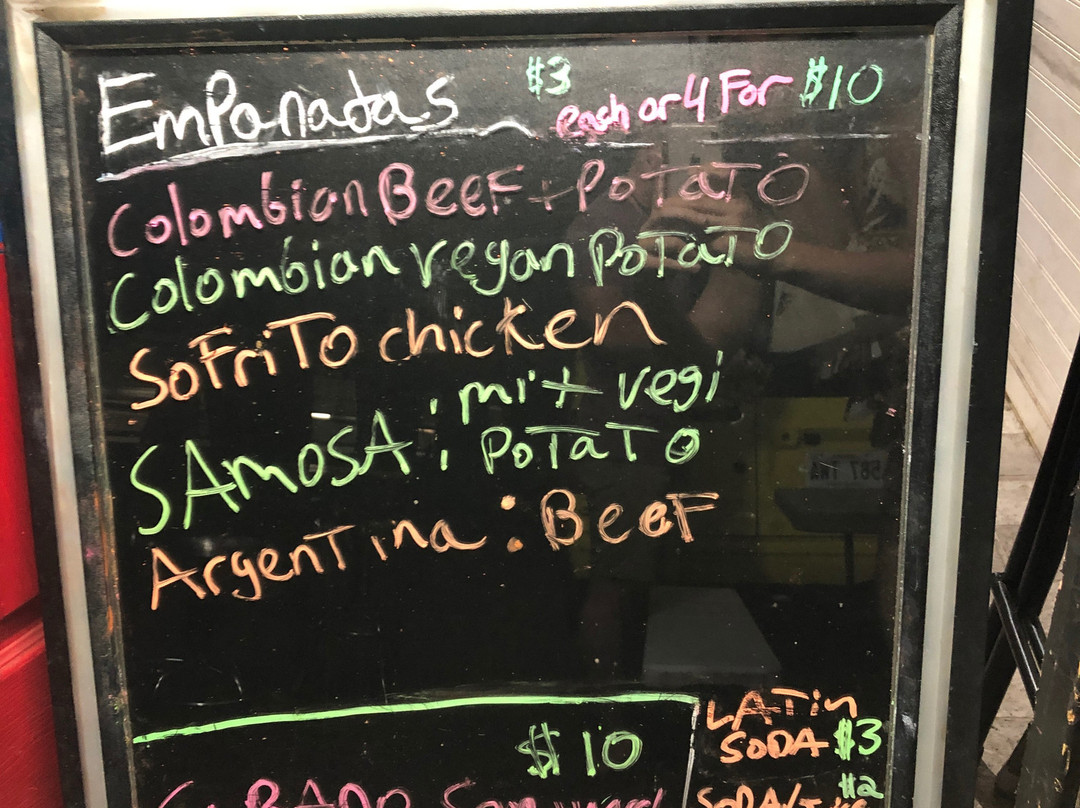 EmPanadas $3 each or 4 For $10
Colombian BeeF + PoTaTO
Colombian vegan PoTaTO
SoFriTo chicken
SAmoSA : mit vegi
PoTaTO
ArgenTina : BeeF
$10
LATin
SoDA $3
$2